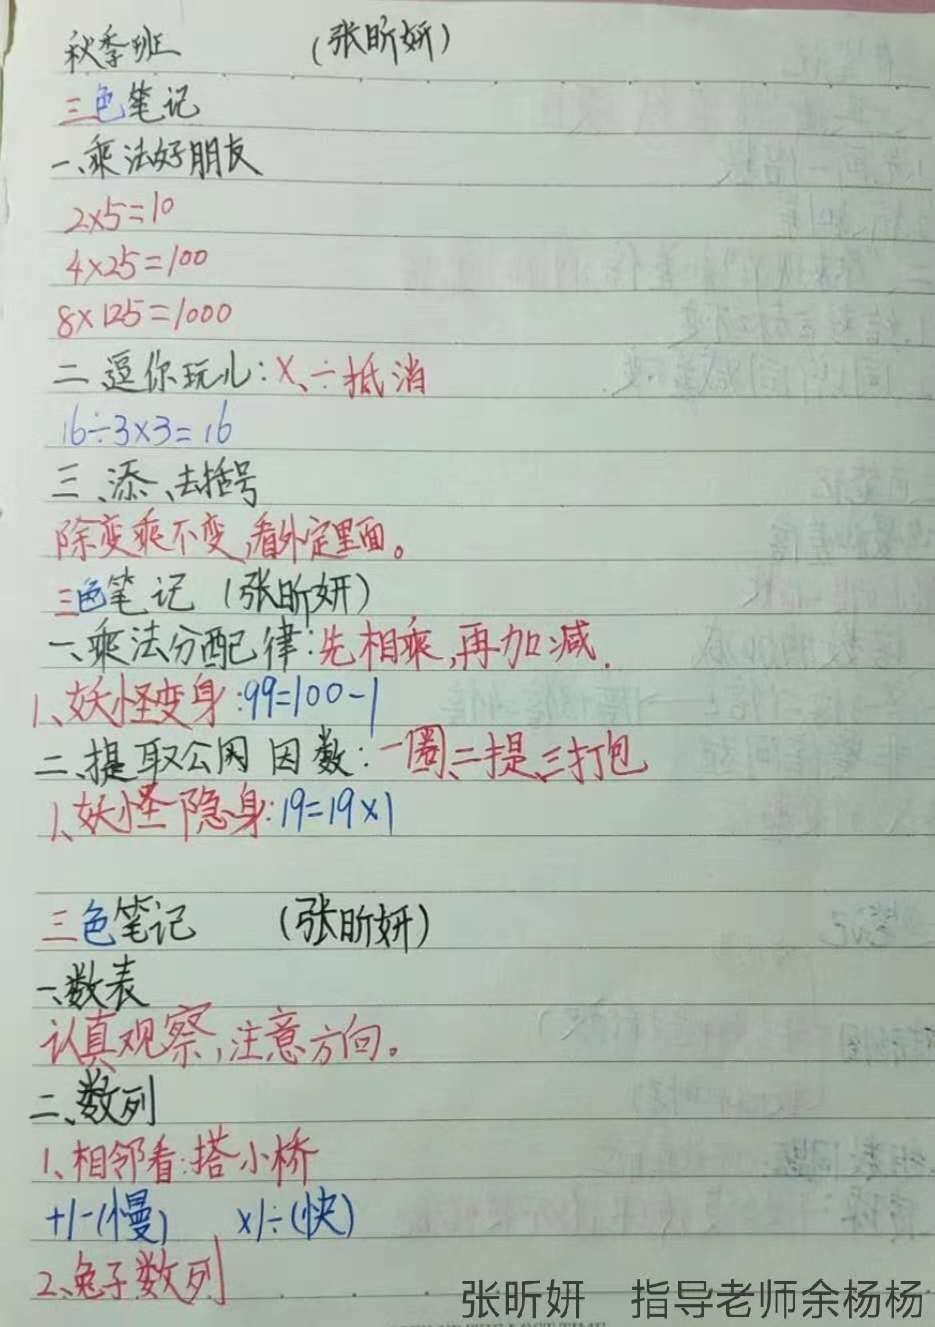 秋季班 (张昕妍)
三色笔记
一、乘法好朋友
2×5=10
4×25=100
8×125=1000
二、逗你玩儿:×、÷抵消
16÷3×3=16
三、添、去括号
除变乘不变,看外定里面。
三色笔记 (张昕妍)
一、乘法分配律:先相乘,再加减.
1、妖怪变身:99=100-1
二、提取公因数:一圈、二提、三打包
1、妖怪隐身:19=19×1
三色笔记 (张昕妍)
一、数表
认真观察,注意方向。
二、数列
1、相邻看:搭小桥
+/-(慢) ×/÷(快)
2、兔子数列
张昕妍 指导老师余杨杨